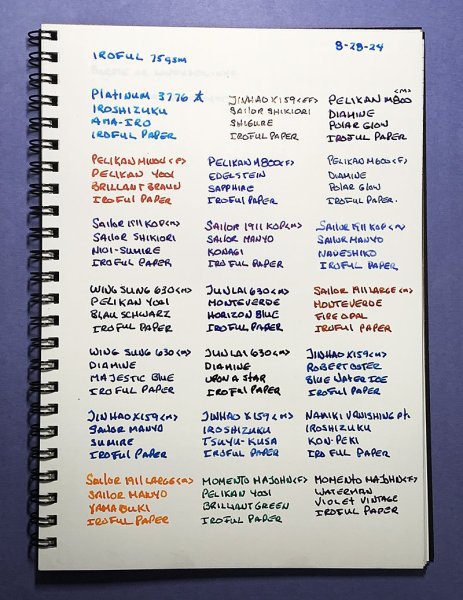 IROFUL 75gsm
8-28-24
PLATINUM 3776
IROSHIZUKU
AMA-IRO
IROFUL PAPER
JINHAO X159<EF>
SAILOR SHIKIORI
SHIGURE
IROFUL PAPER
<M>
PELIKAN M800
DIAMINE
POLAR GLOW
IROFUL PAPER
PELIKAN M1000<F>
PELIKAN 4001
BRILLANT BRAUN
IROFUL PAPER
PELIKAN M800<F>
EDELSTEIN
SAPPHIRE
IROFUL PAPER
PELIKAN M600<F>
DIAMINE
POLAR GLOW
IROFUL PAPER.
SAILOR 1911 KOP<M>
SAILOR SHIKIORI
NIOI-SUMIRE
IROFUL PAPER
SAILOR 1911 KOP<M>
SAILOR MANYO
KONAGI
IROFUL PAPER
SAILOR 1911 KOP<M>
SAILOR MANYO
NADESHIKO
IROFUL PAPER
WING SUNG 630<M>
PELIKAN 4001
BLAU SCHWARZ
IROFUL PAPER
JUNLAI 630<M>
MONTEVERDE
HORIZON BLUE
IROFUL PAPER
SAILOR 1911 LARGE<M>
MONTEVERDE
FIRE OPAL
IROFUL PAPER
WING SUNG 630<M>
DIAMINE
MAJESTIC BLUE
IROFUL PAPER
JUNLAI 630<M>
DIAMINE
UPON A STAR
IROFUL PAPER
JINHAO X159<M>
ROBERT OSTER
BLUE WATER ICE
IROFUL PAPER
JINHAO X159<M>
SAILOR MANYO
SUMIRE
IROFUL PAPER
JINHAO X159<M>
IROSHIZUKU
TSUYU-KUSA
IROFUL PAPER
NAMIKI VANISHING Pt.
IROSHIZUKU
KON-PEKI
IROFUL PAPER
SAILOR 1911 LARGE<M>
SAILOR MANYO
YAMABUKI
IROFUL PAPER
MOMENTO MAJOHN<F>
PELIKAN 4001
BRILLIANT GREEN
IROFUL PAPER
MOMENTO MAJOHN<F>
WATERMAN
VIOLET VINTAGE
IROFUL PAPER